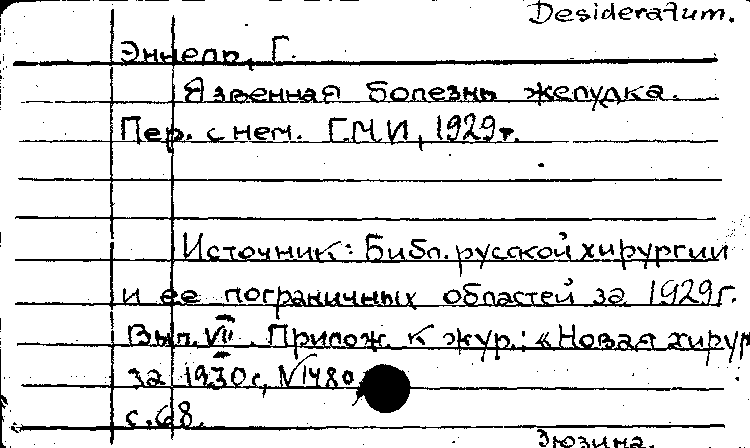 Desideratum.
Эннель, Г.
Язвенная болезнь желудка.
Пер. с нем. Г.М.И, 1929г.
Источник: Библ. русской хирургии
и ее пограничных областей за 1929г.
Вып. VII. Прилож. к жур.: «Новая хирур
за 1930г, №1480
с.68.
Эюзина.